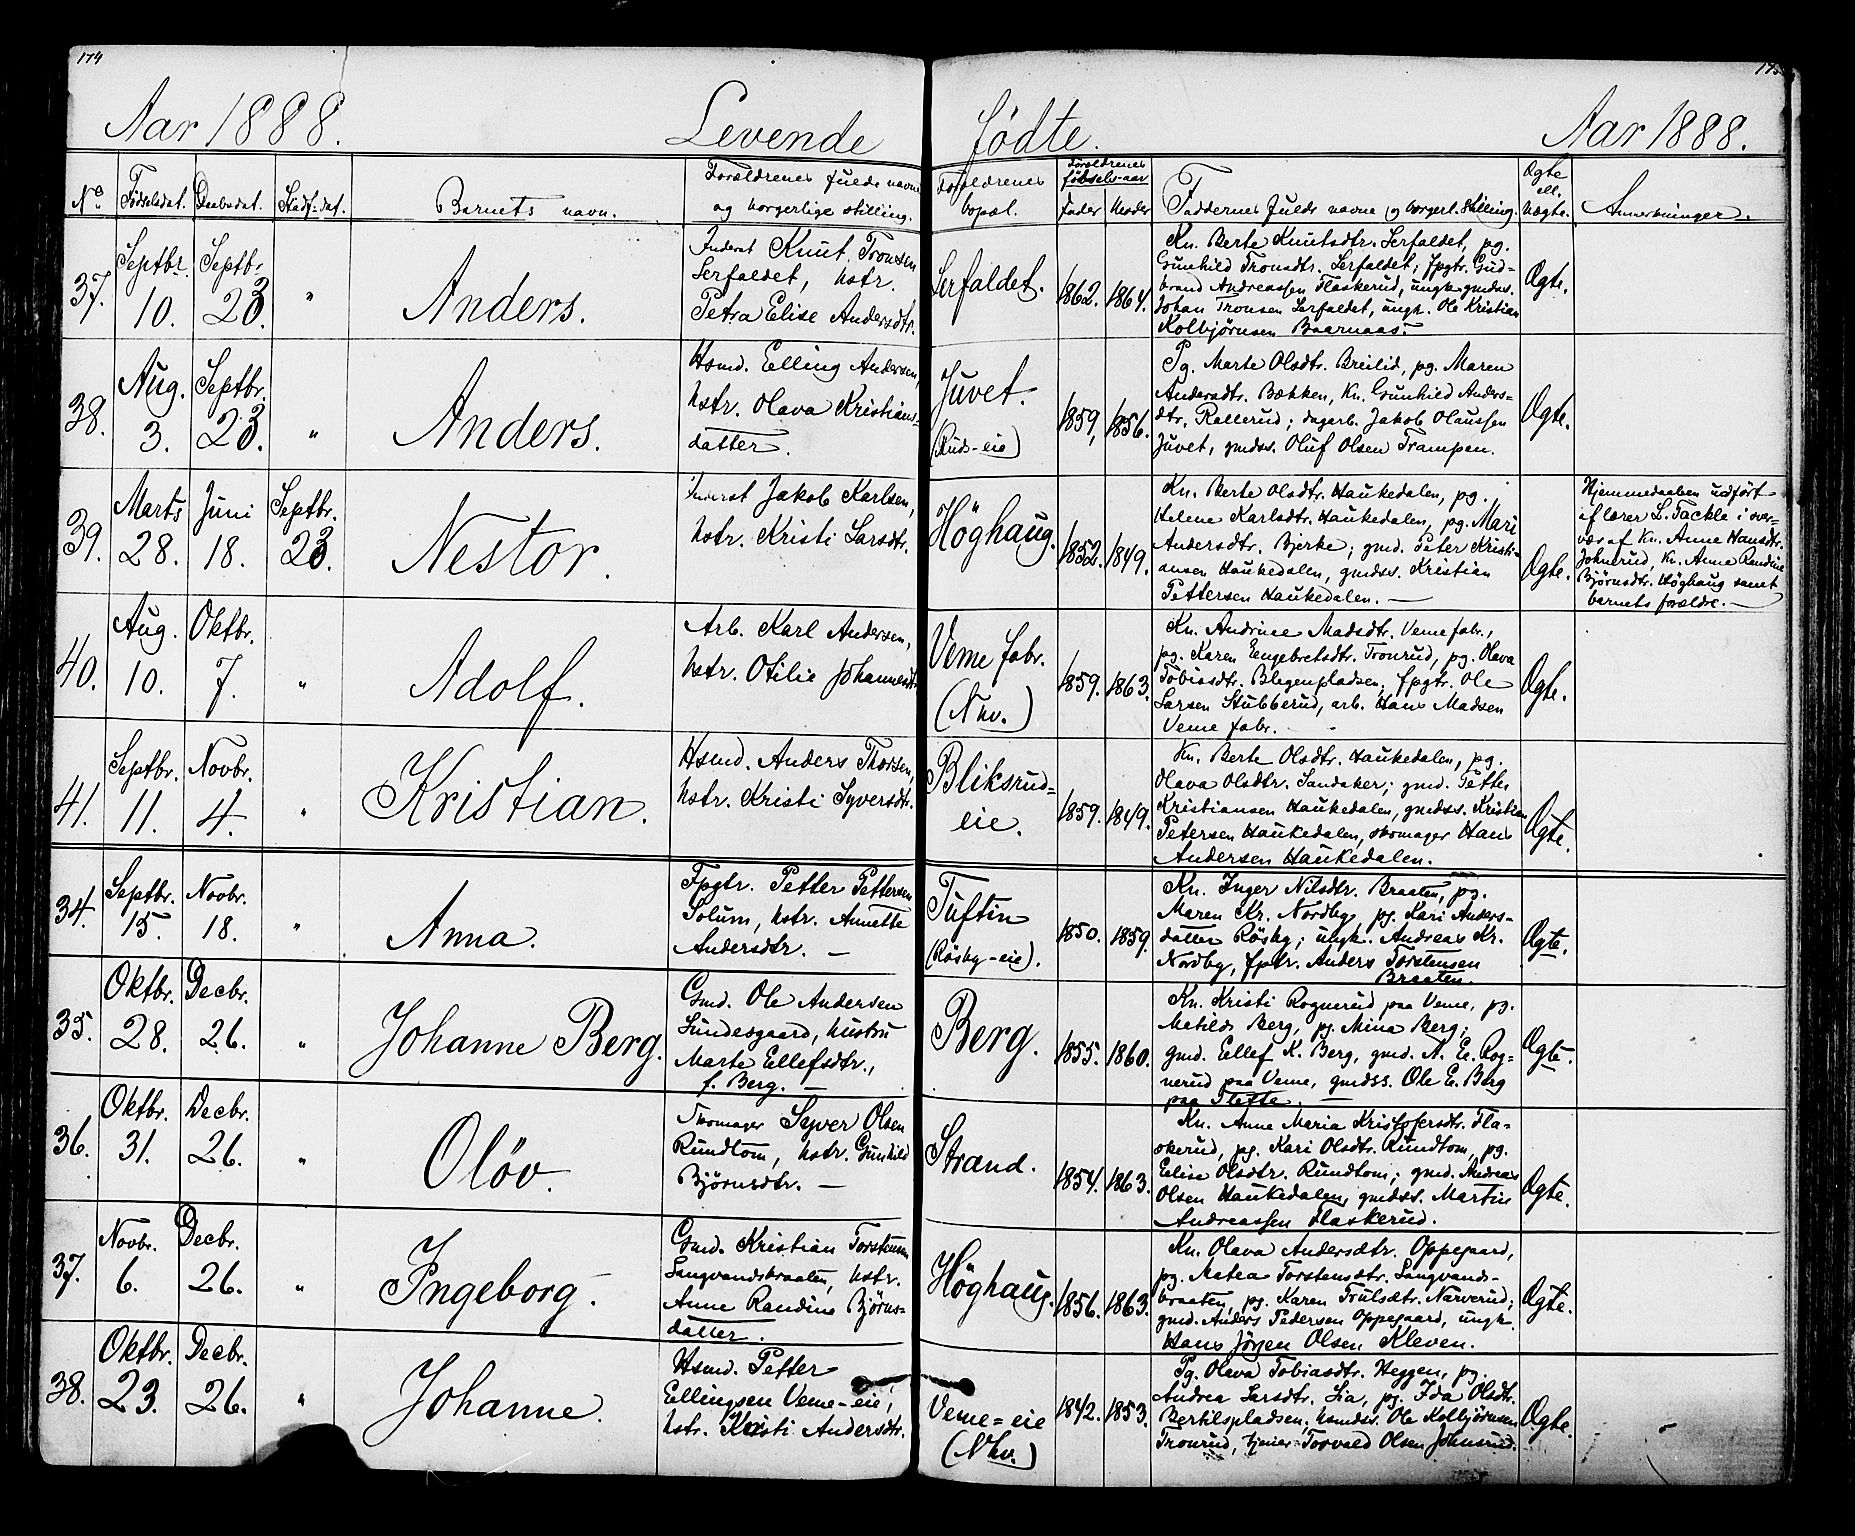 174
175
Aar 1888.
Levende
fødte.
Aar 1888.
No
Fødselsdat.
Daabsdat.
Stadf-dat.
Barnets navn.
Forældrenes fulde navne
og borgerlige stilling.
Forældrenes
bopæl.
Forældrenes
fødsels-aar
Fader
Moder
Faddernes fulde navne og borgerl. stilling.
Ægte
ell.
Uægte.
Anmerkninger.
37.
Septbr.
10.
Septbr.
23.
"
Anders.
Inderst Knut Tronsen
Lerfaldet, hstr.
Petra Elise Andersdtr.
Lerfaldet.
1862.
1864.
Kn. Berte Knutsdtr. Lerfaldet, pg.
Gunhild Tronsdtr. Lerfaldet; fpgtr. Gud-
brand Andreassen Flaskerud, ungk. gmdss.
Johan Tronsen Lerfaldet, ungk. Ole Kristian
Kolbjørnsen Baarnaas.
Ægte.
38.
Aug.
3.
Septbr.
23.
"
Anders.
Hsmd. Elling Andersen,
hstr. Olava Kristians-
datter.
Juvet.
(Ruds-eie)
1859,
1856.
Pg. Marte Olsdtr. Breilid, pg. Maren
Andersdtr. Bækken, Kn. Gunhild Anders-
dtr. Rallerud; dagarb. Jakob Olaussen
Juvet, gmdss. Oluf Olsen Trampen.
Ægte.
39.
Marts
28.
Juni
18.
Septbr.
23.
Nestor.
Inderst Jakob Karlsen,
hstr. Kristi Larsdtr.
Höghaug.
1852.
1849.
Kn. Berte Olsdtr. Haukedalen, pg.
Helene Karlsdtr. Haukedalen, pg. Mari
Andersdtr. Bjerke; gmd. Peter Kristi-
ansen Haukedalen, gmdss. Kristian
Pettersen Haukedalen. —
Ægte.
Hjemmedaaben udført
af lærer L. Tackle i over-
vær af Kn. Anne Hansdtr.
Johnsrud, Kn. Anne Randine
Bjørnsdtr. Høghaug samt
barnets forældre. —
40.
Aug.
10.
Oktbr.
7.
"
Adolf.
Arb. Karl Andersen,
hstr. Otilie Johannesdtr.
Veme fabr.
(Nhv.)
1859.
1863.
Kn. Andrine Madsdtr. Veme fabr.,
pg. Karen Engebretsdtr. Tronrud, pg. Olava
Tobiasdtr. Blegenpladsen; fpgtr. Ole
Larsen Stubberud, arb. Hans Madsen
Veme fabr.
Ægte.
41.
Septbr.
11.
Novbr.
4.
"
Kristian.
Hsmd. Anders Thorsen,
hstr. Kristi Syversdtr.
Bliksrud-
eie.
1859.
1849.
Kn. Berte Olsdtr. Haukedalen, pg.
Olava Olsdtr. Sandaker; gmd. Petter
Kristiansen Haukedalen, gmdss. Kristian
Petersen Haukedalen, skomager Hans
Andersen Haukedalen.
Ægte.
34.
Septbr.
15.
Novbr.
18.
"
Anna.
Fpgtr. Petter Pettersen
Solum, hstr. Annette
Andersdtr. —
Tuftin
(Røsby-eie).
1850.
1859.
Kn. Inger Nilsdtr. Braaten, pg.
Maren Kr. Nordby, pg. Kari Anders-
datter Røsby; ungk. Andreas Kr.
Nordby, fptr. Anders Torstensen
Braaten.
Ægte.
35.
Oktbr.
28.
Decbr.
26.
"
Johanne Berg.
Gmd. Ole Andersen
Lundesgaard, hustru
Marte Ellefsdtr.,
f. Berg. —
Berg.
1855.
1860.
Kn. Kristi Rognerud paa Veme, pg.
Matilde Berg, pg. Mina Berg;
gmd. Ellef K. Berg, gmd. A. E. Rog-
nerud paa Veme, gmdss. Ole E. Berg
paa Flette. —
Ægte.
36.
Oktbr.
31.
Decbr.
26.
"
Oløv.
Skomager Syver Olsen
Rundtom, hstr. Gunhild
Bjørnsdtr. —
Strand.
1854.
1863.
Kn. Anne Maria Kristofersdtr. Fla-
skerud, pg. Kari Olsdtr. Rundtom, pg.
Elise Olsdtr. Rundtom; gmd. Andreas
Olsen Haukedalen, gmdss. Martin
Andreassen Flaskerud.
Ægte.
37.
Novbr.
6.
Decbr.
26.
"
Ingeborg.
Gmd. Kristian Torstensen
Langvandsbraaten, hstr.
Anne Randine Bjørns-
datter.
Höghaug.
1856.
1863.
Kn. Olava Andersdtr. Oppegaard,
pg. Matea Torstensdtr. Langvands-
braaten, pg. Karen Trulsdtr. Narverud;
gmd. Anders Pedersen Oppegaard, ungk.
Hans Jørgen Olsen Kleven.
Ægte.
38.
Oktbr.
23.
Decbr.
26.
"
Johanne.
Hsmd. Petter
Ellingsen Veme-eie,
hstr. Kristi Andersdtr.
Veme-eie
(Nhv.)
1842.
1853.
Pg. Olava Tobiasdtr. Heggen, pg.
Andrea Larsdtr. Lia, pg. Ida Olsdtr.
Bertilspladsen; hsmdss. Ole Kolbjørnsen
Tronrud, tjener Torvald Olsen Johnsrud.
Ægte.